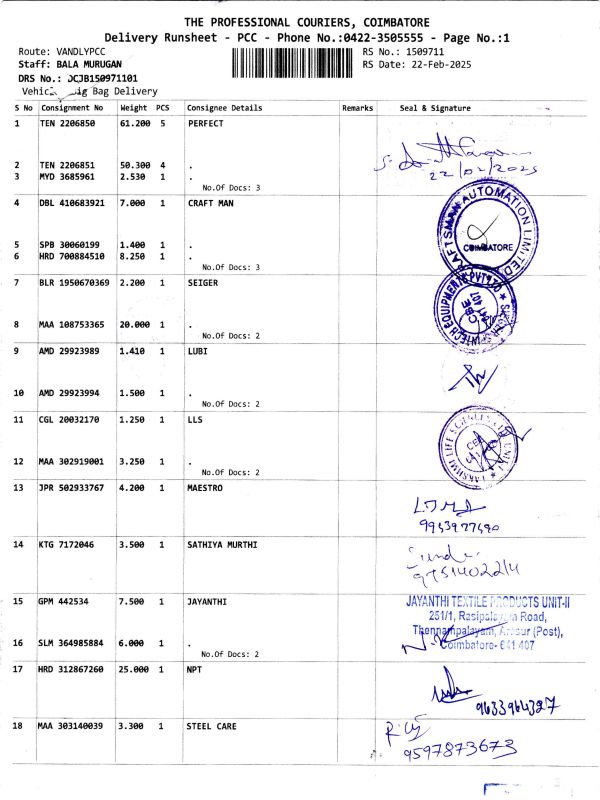 THE PROFESSIONAL COURIERS, COIMBATORE
Delivery Runsheet - PCC - Phone No.:0422-3505555 - Page No.:1
Route: VANDLYPCC
RS No.: 1509711
Staff: BALA MURUGAN
RS Date: 22-Feb-2025
DRS No.: DCJB150971101
Bag Delivery
S No Consignment No Weight PCS Consignee Details Remarks Seal & Signature
1 TEN 2206850 61.200 5 PERFECT
22/02/2025
2 TEN 2206851 50.300 4 .
3 MYD 3685961 2.530 1 .
No.Of Docs: 3
4 DBL 410683921 7.000 1 CRAFT MAN
CRAFTSMAN AUTOMATION LIMITED
COIMBATORE
5 SPB 30060199 1.400 1 .
6 HRD 700884510 8.250 1 .
No.Of Docs: 3
7 BLR 1950670369 2.200 1 SEIGER
CBE
641 407
8 MAA 108753365 20.000 1 .
No.Of Docs: 2
9 AMD 29923989 1.410 1 LUBI
10 AMD 29923994 1.500 1 .
No.Of Docs: 2
11 CGL 20032170 1.250 1 LLS
LAKSHMI LIFE SCIENCES
12 MAA 302919001 3.250 1 .
No.Of Docs: 2
13 JPR 502933767 4.200 1 MAESTRO
14 KTG 7172046 3.500 1 SATHIYA MURTHI
15 GPM 442534 7.500 1 JAYANTHI
JAYANTHI TEXTILE PRODUCTS UNIT-II
251/1, Rasipalayam Road,
Thennampalayam, Arasur (Post),
Coimbatore- 641 407
16 SLM 364985884 6.000 1 .
No.Of Docs: 2
17 HRD 312867260 25.000 1 NPT
9633964327
18 MAA 303140039 3.300 1 STEEL CARE
9597873673